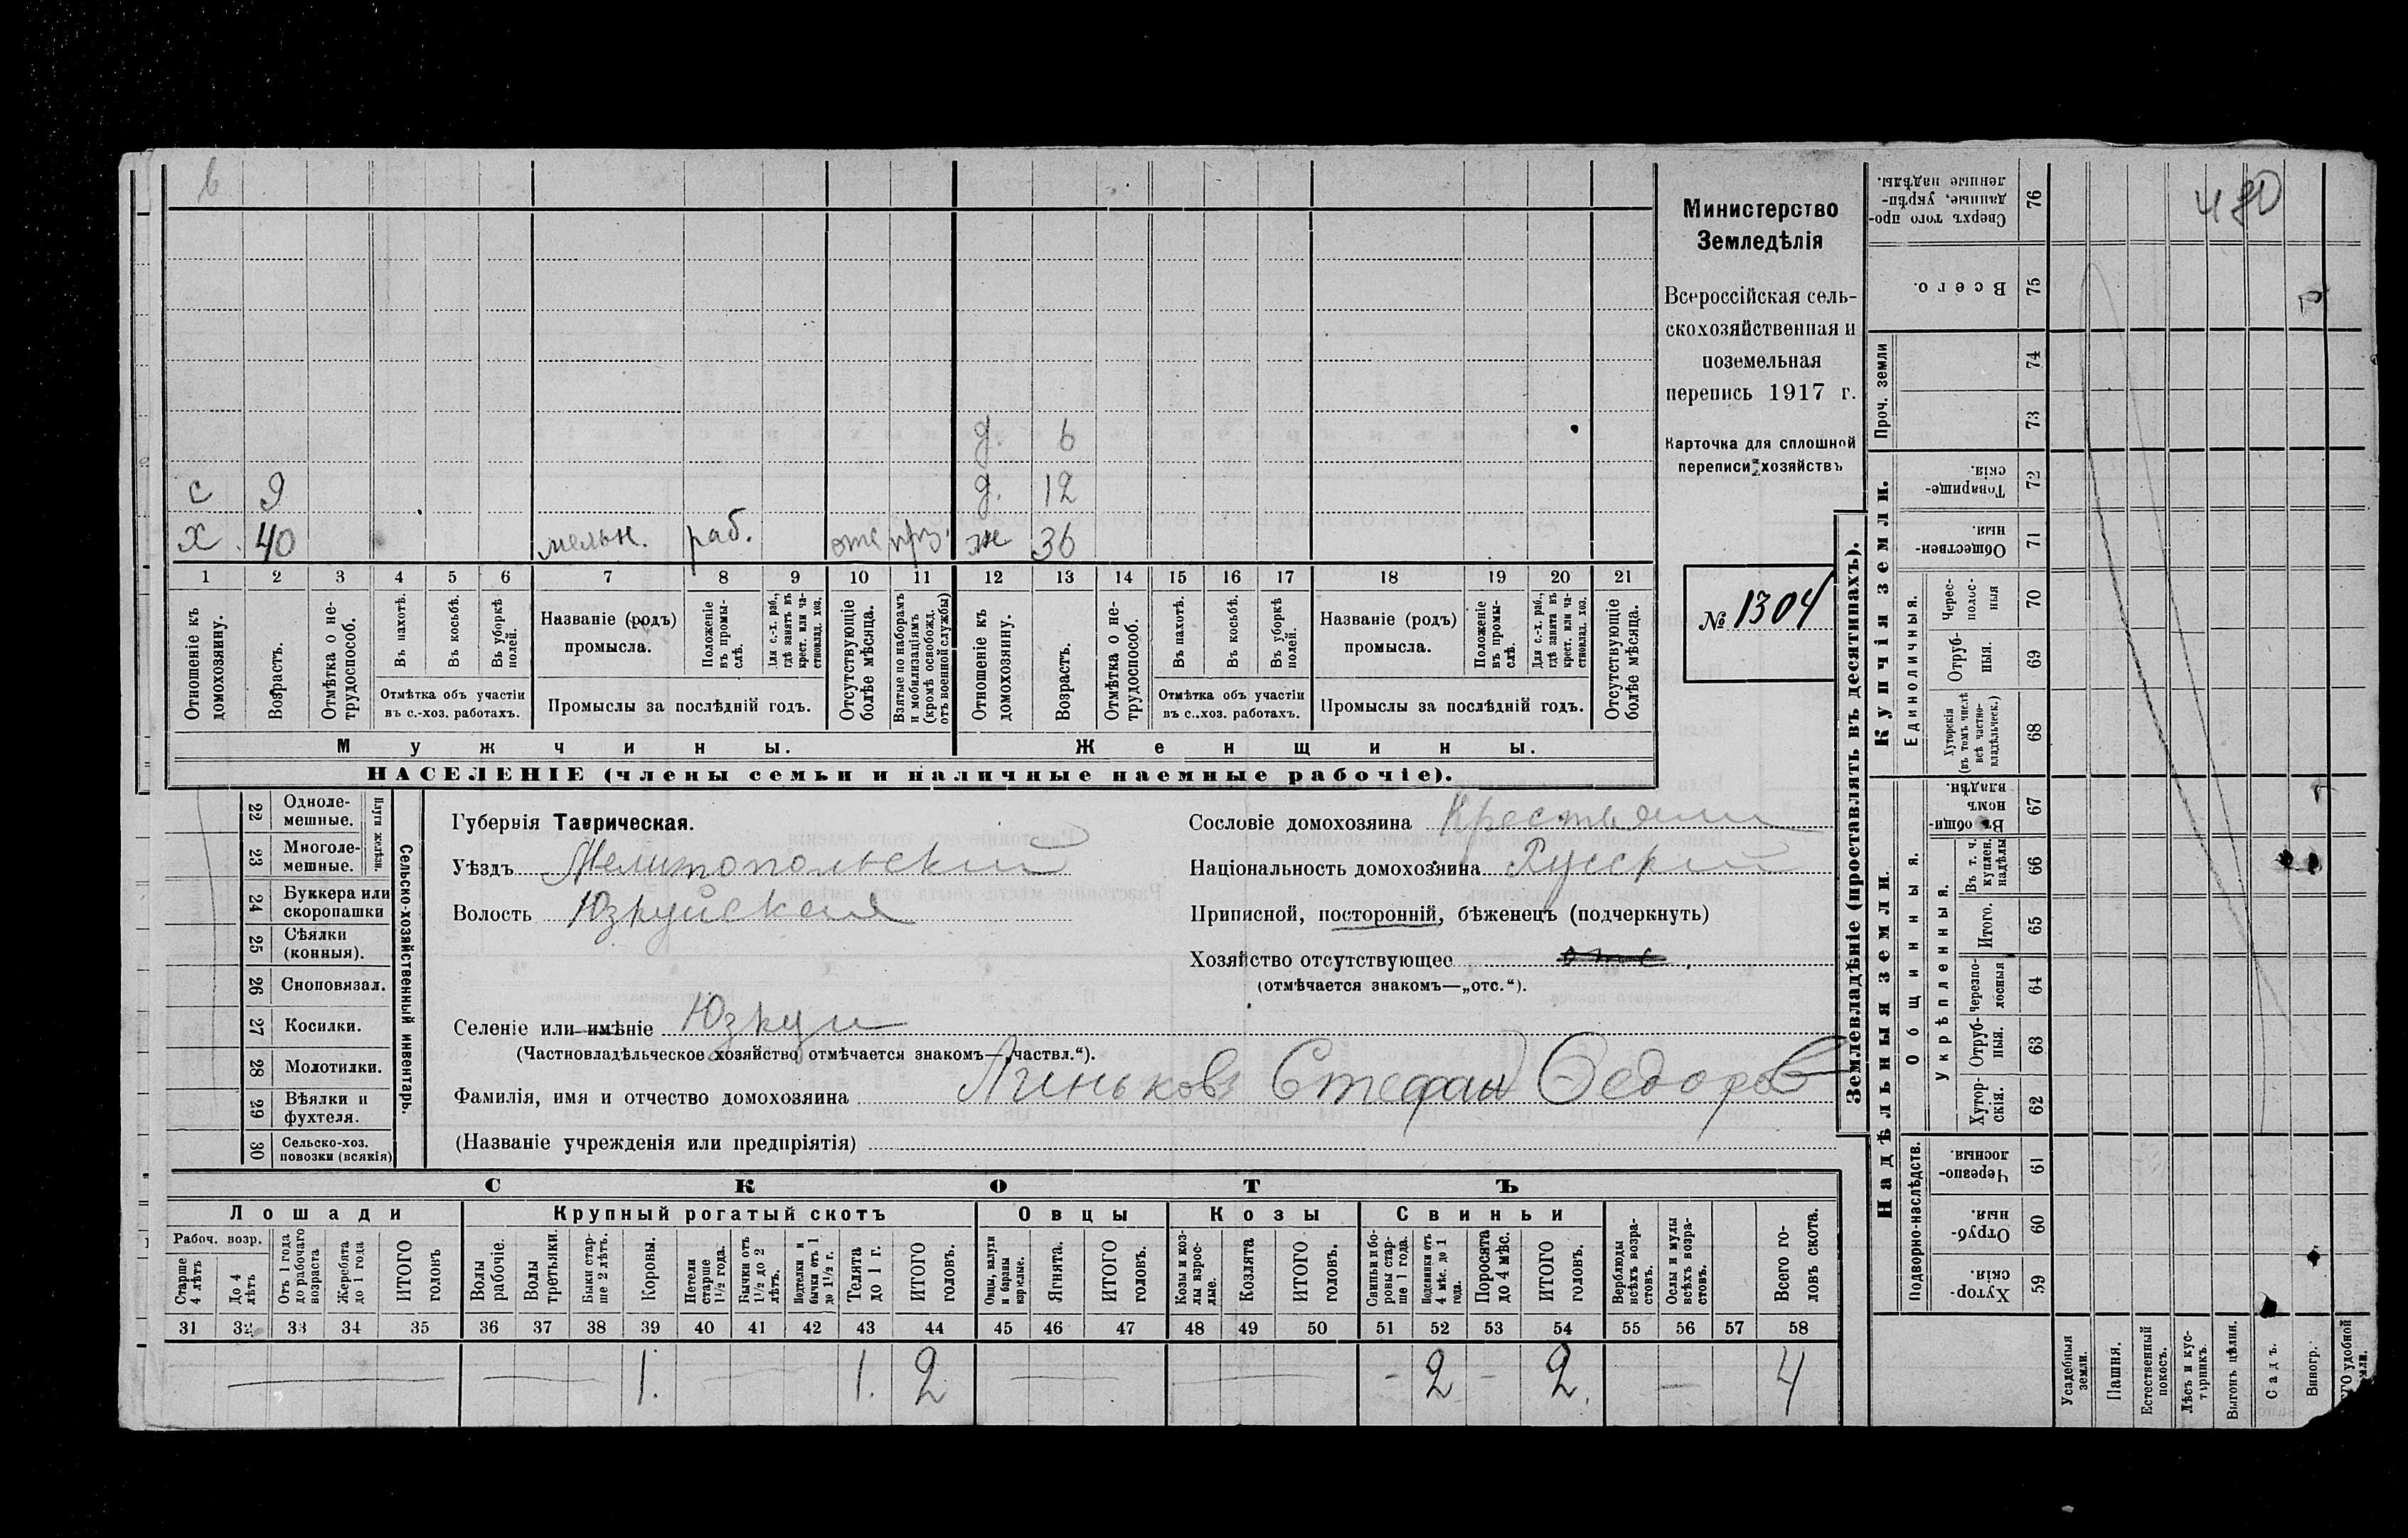 480
д. 6
с 9 д. 12
х 40 мельн. раб. отс ж 36
1 2 3 4 5 6 7 8 9 10 11 12 13 14 15 16 17 18 19 20 21
Отношеніе къ домохозяину.
Возрастъ.
Отмѣтка о не-трудоспособ.
Въ пахотѣ.
Въ косьбѣ.
Въ уборкѣ полей.
Отмѣтка объ участіи
въ с.-хоз. работахъ.
Названіе (родъ)
промысла.
Положеніе въ промы-слѣ.
Для с.-х. раб., гдѣ занятъ въ крест. или ча-стновлад. хоз.
Промыслы за послѣдній годъ.
Отсутствующіе болѣе мѣсяца.
Взятые по наборамъ и мобилизаціямъ (кромѣ освобожд. отъ военной службы)
Отношеніе къ домохозяину.
Возрастъ.
Отмѣтка о не-трудоспособ.
Въ пахотѣ.
Въ косьбѣ.
Въ уборкѣ полей.
Отмѣтка объ участіи
въ с..хоз. работахъ.
Названіе (родъ)
промысла.
Положеніе въ промы-слѣ.
Для с.-х. раб., гдѣ занята въ крест. или ча-стновлад. хоз.
Промыслы за послѣдній годъ.
Отсутствующіе болѣе мѣсяца.
Мужчины. Женщины.
НАСЕЛЕНІЕ (члены семьи и наличные наемные рабочіе).
Министерство
Земледѣлія
Всероссійская сель-
скохозяйственная и
поземельная
перепись 1917 г.
Карточка для сплошной
переписи хозяйствъ
№ 1304
22 Одноле-мешные.
23 Многоле-мешные.
Плуги желѣзн.
24 Буккера или скоропашки
25 Сѣялки (конныя).
26 Сноповязал.
27 Косилки.
28 Молотилки.
29 Вѣялки и фухтеля.
30 Сельско-хоз. повозки (всякія)
Сельско-хозяйственный инвентарь.
Губернія Таврическая.
Уѣздъ Мелитопольский
Волость Юзкуйская
Селеніе или имѣніе Юзкуи
(Частновладѣльческое хозяйство отмѣчается знакомъ—„частвл.“).
Фамилія, имя и отчество домохозяина Линьковъ Стефан Федоров
(Названіе учрежденія или предпріятія)
Сословіе домохозяина Крестьянин
Національность домохозяина Русский
Приписной, посторонній, бѣженецъ (подчеркнуть)
Хозяйство отсутствующее отс
(отмѣчается знакомъ—„отс.“).
СКОТЪ
Лошади Крупный рогатый скотъ Овцы Козы Свиньи
Рабоч. возр.
Старше 4 лѣтъ
До 4 лѣтъ
Отъ 1 года до рабочаго возраста
Жеребята до 1 года
ИТОГО головъ
Волы рабочіе.
Волы третьяки.
Быки стар-ше 2 лѣтъ.
Коровы.
Нетели старше 1½ года.
Бычки отъ 1½ до 2 лѣтъ.
Подтелки и бычки отъ 1 до 1½ г.
Телята до 1 г.
ИТОГО головъ.
Овцы, валухи и бараны взрослые.
Ягнята.
ИТОГО головъ.
Козы и коз-лы взрос-лые.
Козлята
ИТОГО головъ.
Свиньи и бо-ровы стар-ше 1 года.
Подсвинки отъ 4 мѣс. до 1 года.
Поросята до 4 мѣс.
ИТОГО головъ.
Верблюды всѣхъ возра-стовъ.
Ослы и мулы всѣхъ возра-стовъ.
Всего го-ловъ скота.
31 32 33 34 35 36 37 38 39 40 41 42 43 44 45 46 47 48 49 50 51 52 53 54 55 56 57 58
— — 1. — 1. 2 — — - 2 - 2. — 4
Землевладѣніе (проставлять въ десятинахъ).
Сверхъ того про-данные, укрѣп-ленные надѣлы. 76
Всего. 75
Проч. земли
74
73
Купчія земли.
Товарище-скія. 72
Обществен-ныя. 71
Единоличныя.
Черес-полос-ныя 70
Отруб-ныя. 69
Хуторскія (въ томъ числѣ всѣ частно-владѣльческ.) 68
Надѣльныя земли.
Общинныя.
Въ общин-номъ владѣн. 67
Укрѣпленныя.
Въ т. ч. куплен. надѣлы 66
Итого. 65
Черезпо-лосныя 64
Отруб-ныя. 63
Хутор-скія. 62
Подворно-наслѣдств.
Черезпо-лосныя. 61
Отруб-ныя. 60
Хутор-скія. 59
Усадебныя земли.
Пашня.
Естественный покосъ.
Лѣсъ и кус-тарникъ.
Выгонъ цѣлин.
Садъ.
Виногр.
удобной